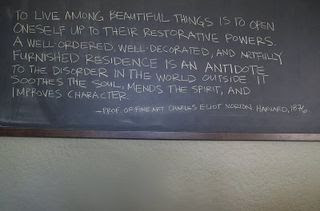 TO LIVE AMONG BEAUTIFUL THINGS IS TO OPEN
ONESELF UP TO THEIR RESTORATIVE POWERS.
A WELL-ORDERED, WELL-DECORATED, AND ARTFULLY
FURNISHED RESIDENCE IS AN ANTIDOTE
TO THE DISORDER IN THE WORLD OUTSIDE. IT
SOOTHES THE SOUL, MENDS THE SPIRIT, AND
IMPROVES CHARACTER.
—PROF. OF FINE ART CHARLES ELIOT NORTON. HARVARD, 1876